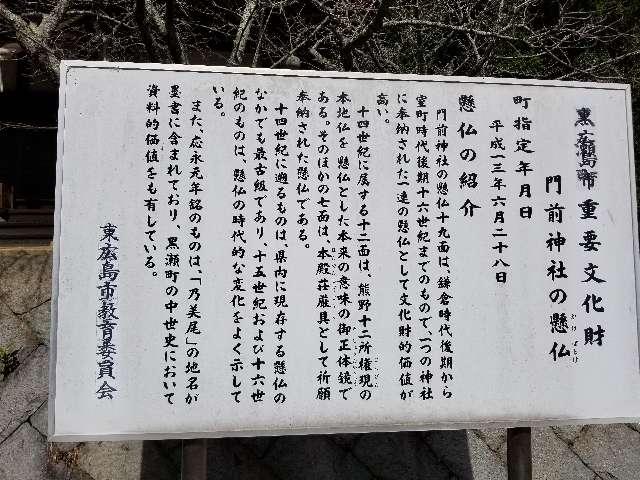 東広島市重要文化財
門前神社の懸仏
かけ ぼとけ
町指定年月日
平成一三年六月二十八日
懸仏の紹介
門前神社の懸仏十九面は、鎌倉時代後期から
室町時代後期十六世紀までのもので、一つの神社
に奉納された一連の懸仏として文化財的価値が
高い。
十四世紀に属する十二面は、熊野十二所権現の
本地仏を懸仏とした本来の意味の御正体鏡で
ある。そのほかの七面は、本殿荘厳具として祈願
奉納された懸仏である。
十四世紀に遡るものは、県内に現存する懸仏の
なかでも最古級であり、十五世紀および十六世
紀のものは、懸仏の時代的な変化をよく示して
いる。
また、応永元年銘のものは、「乃美尾」の地名が
墨書に含まれており、黒瀬町の中世史において
資料的価値をも有している。
東広島市教育委員会